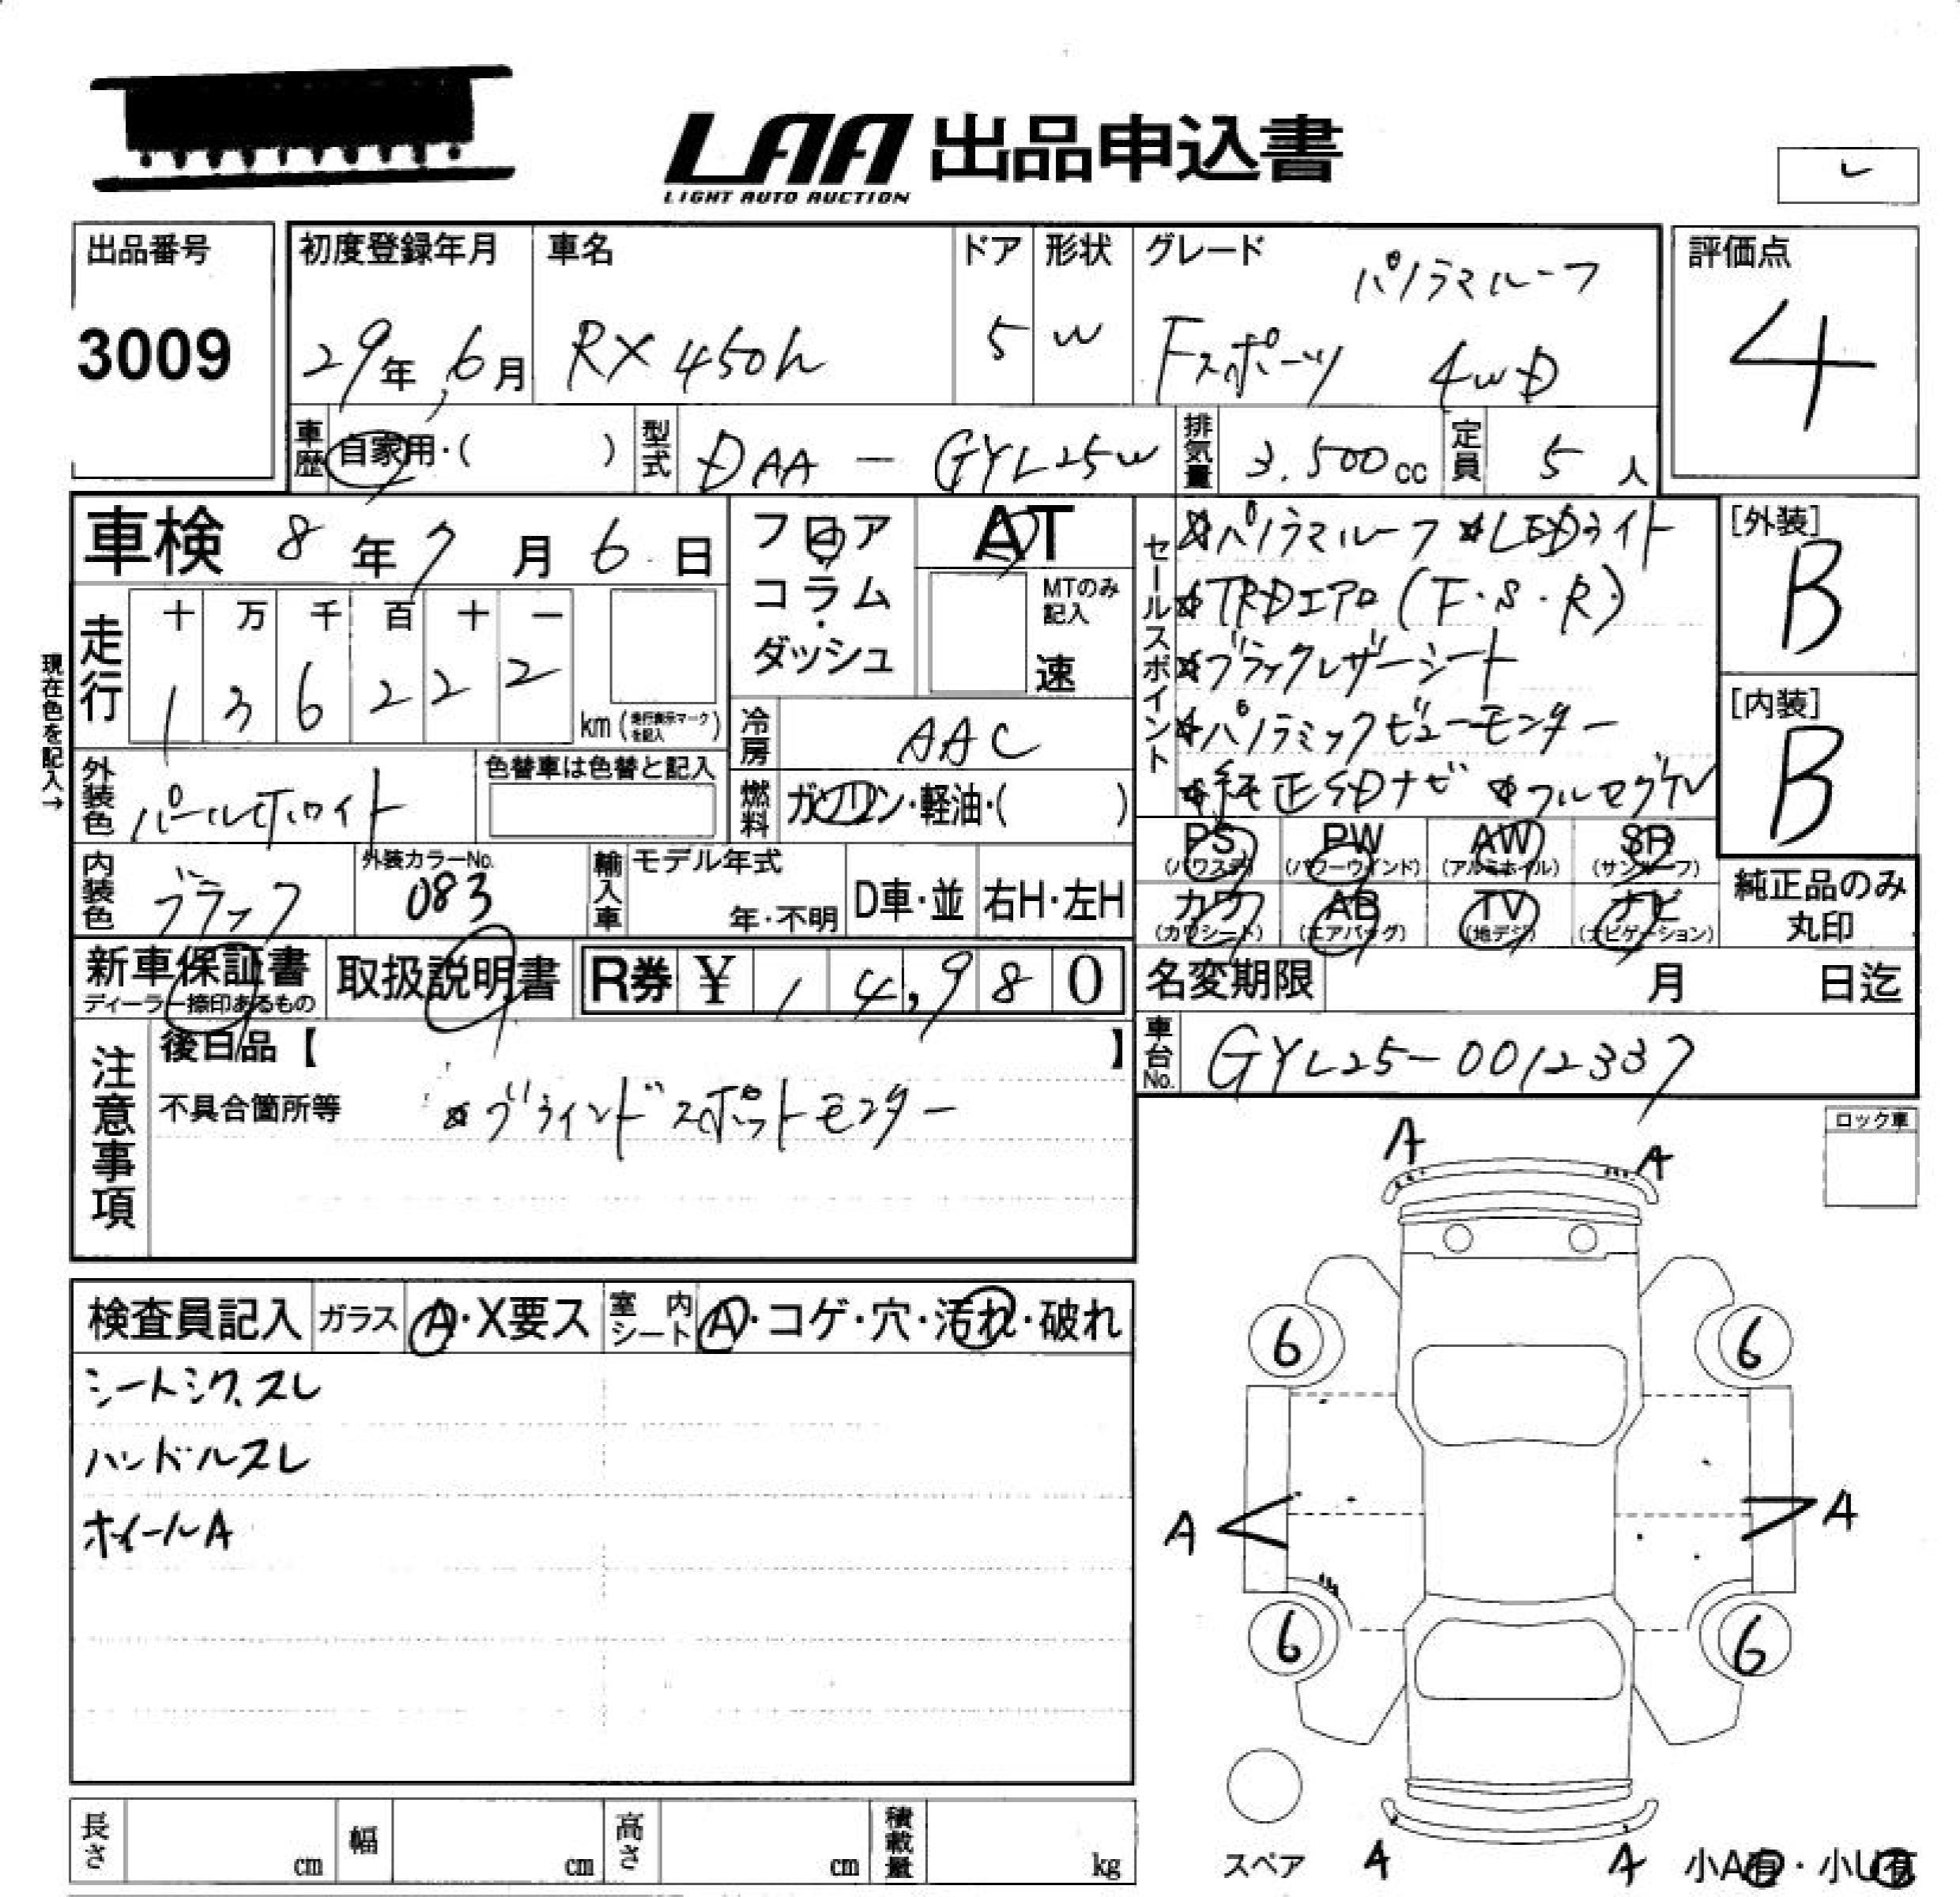 LAA 出品申込書
LIGHT AUTO AUCTION
レ
出品番号
3009
初度登録年月
29年 6月
車名
RX450h
ドア
5
形状
W
グレード
パノラマルーフ
Fスポーツ 4WD
評価点
4
車歴
自家用・( )
型式
DAA - GYL25W
排気量
3.500cc
定員
5人
車検 8年7月6日
フロア
コラム・
ダッシュ
AT
MTのみ記入
速
セールスポイント
☆パノラマルーフ ☆LEDライト
☆TRDエアロ(F・S・R)
☆ブラックレザーシート
☆パノラミックビューモンター
☆純正SDナビ ☆フルセグTV
[外装]
B
[内装]
B
現在色を記入→
走行
十 万 千 百 十 一
1 3 6 2 2 2
km (走行表示マークを記入)
冷房
AAC
外装色
パールホワイト
色替車は色替と記入
燃料
ガソリン・軽油・( )
PS (パワステ)
PW (パワーウインド)
AW (アルミホイル)
SR (サンルーフ)
カワ (カワシート)
AB (エアバッグ)
TV (地デジ)
ナビ (ナビゲーション)
純正品のみ
丸印
内装色
ブラック
外装カラーNo.
083
輸入車
モデル年式
年・不明
D車・並
右H・左H
新車保証書
ディーラー捺印あるもの
取扱説明書
R券 ¥ 14,980
名変期限 月 日迄
車台No.
GYL25-0012337
注意事項
後日品【 】
不具合箇所等
☆ブラインドスポットモンター
ロック車
A A
検査員記入
ガラス
A・X要ス
室内シート
A・コゲ・穴・汚れ・破れ
シートシワ.スレ
ハンドルスレ
ホイールA
6 6
A A
6 6
スペア
A A
小A有・小U有
長さ cm
幅 cm
高さ cm
積載量 kg